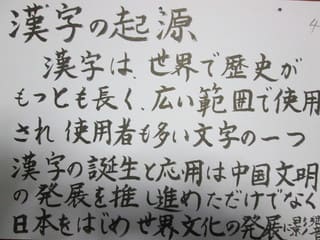 漢字の起源
漢字は、世界で歴史が
もっとも長く、広い範囲で使用
され 使用者も多い文字の一つ
漢字の誕生と応用は中国文明
の発展を推し進めただけでなく
日本をはじめ世界文化の発展に影響